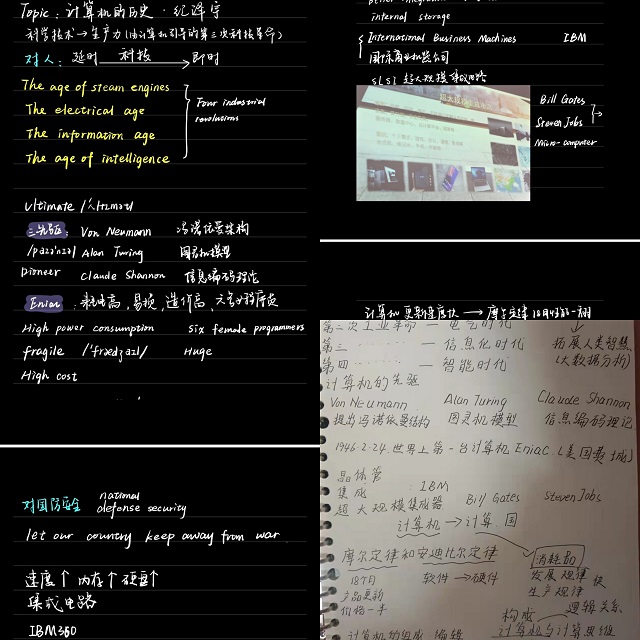 Topic: 计算机的历史·纪泽宇
科学技术→生产力
对人: 延时 科技 即时
The age of steam engines
The electrical age
The information age
The age of intelligence
Four industrial
revolutions
ultimate
三先驱: Von Neumann 冯诺依曼架构
Alan Turing 图灵机模型
Pioneer Claude Shannon 信息编码理论
Eniac: 耗电高, 易损, 造价高,
High power consumption Six female programmers
fragile Huge
High cost
对国防安全 national
defense security
let our country keep away from war
速度↑ 内存↑ 硬盘↑
集成电路
IBM360
internal storage
International Business Machines IBM
国际商业机器公司
SLSI 超大规模集成电路
Bill Gates
Steven Jobs
Micro-computer
计算机更新速度快 → 摩尔定律 18个月 一翻
第二次工业革命 — 电气时代
第三 — 信息化时代 拓展人类智慧
第四 — 智能时代 (大数据分析)
计算机的先驱
Von Neumann Alan Turing Claude Shannon
提出冯诺依曼结构 图灵机模型 信息编码理论
1946.2.24. 世界上第一台计算机 Eniac (美国费城)
晶体管
集成 : IBM
超大规模集成器 Bill Gates Steven Jobs
计算机 → 计算·国
摩尔定律和安迪比尔定律 消耗品
18个月 软件 → 硬件 发展规律
产品更新 生产规律
价格一半 逻辑关系
构成
计算机的组成 编辑 计算机与计算思维